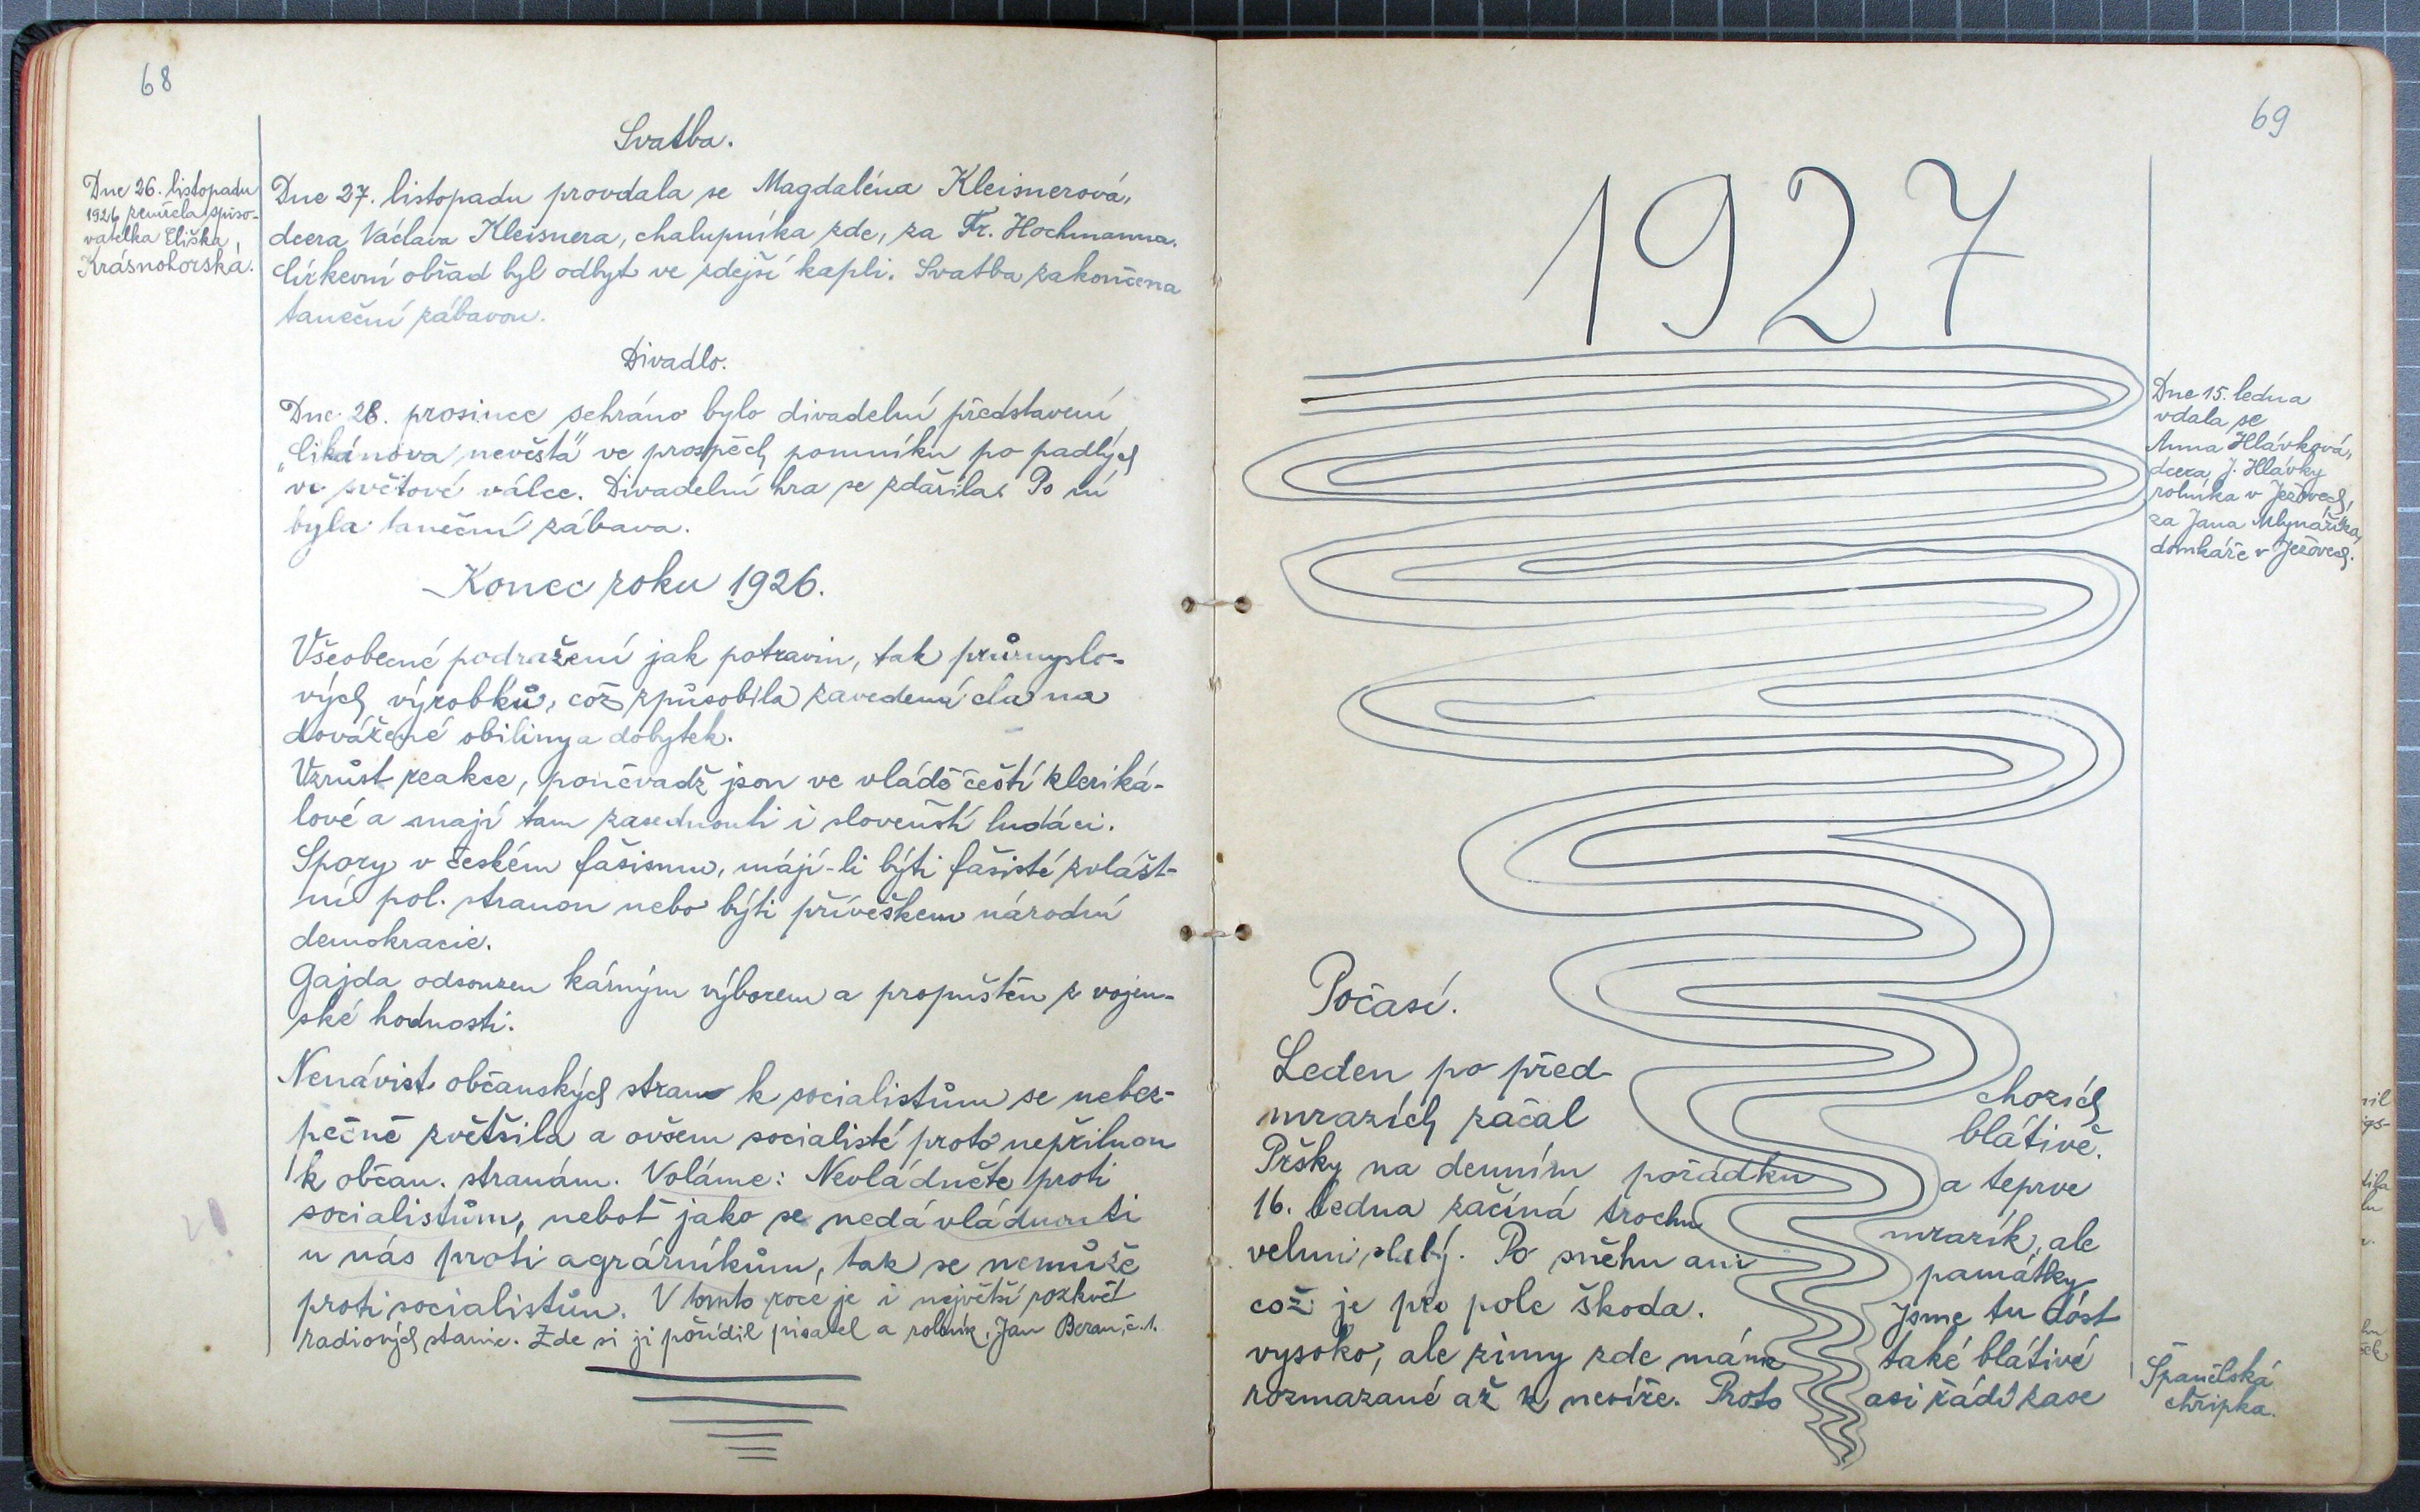 68
Svatba.
Dne 26. listopadu
1926 zemřela spiso-
vatelka Eliška
Krásnohorská.
Dne 27. listopadu provdala se Magdaléna Kleisnerová,
dcera Václava Kleisnera, chalupníka zde, za Fr. Hochmanna.
Církevní obřad byl odbyt ve zdejší kapli. Svatba zakončena
taneční zábavou.
Divadlo.
Dne 28. prosince sehráno bylo divadelní představení
„Cikánova nevěsta" ve prospěch pomníku po padlých
ve světové válce. Divadelní hra se zdařila. Po ní
byla taneční zábava.
Konec roku 1926.
Všeobecné podražení jak potravin, tak průmyslo-
vých výrobků, což způsobila zavedená cla na
dovážené obiliny a dobytek.
Vzrůst reakce, poněvadž jsou ve vládě čeští kleriká-
lové a mají tam zasednouti i slovenští luďáci.
Spory v českém fašismu, mají-li býti fašisté zvlášt-
ní pol. stranou nebo býti přívěškem národní
demokracie.
Gajda odsouzen kárným výborem a propuštěn z vojen-
ské hodnosti.
Nenávist občanských stran k socialistům se nebez-
pečně zvětšila a ovšem socialisté proto nepřilnou
k občan. stranám. Voláme: Nevládněte proti
socialistům, neboť jako se nedá vládnouti
u nás proti agrárníkům, tak se nemůže
proti socialistům. V tomto roce je i největší rozkvět
radiových stanic. Zde si ji pořídil pisatel a rolník, Jan Beran, č. 1.
69
1927
Dne 15. ledna
vdala se
Anna Hlávková,
dcera J. Hlávky
rolníka v Ježovech,
za Jana Mlynaříka,
domkáře v Ježovech.
Počasí.
Leden po před-
chozích
mrazích začal
blátivě.
Pršky na denním pořádku
a teprve
16. ledna začíná trochu
mrazík, ale
velmi slabý. Po sněhu ani
památky
což je pro pole škoda.
Jsme tu dost
vysoko, ale zimy zde máme
také blátivé
rozmazané až k nevíře. Proto
asi řádí zase
Španělská
chřipka.